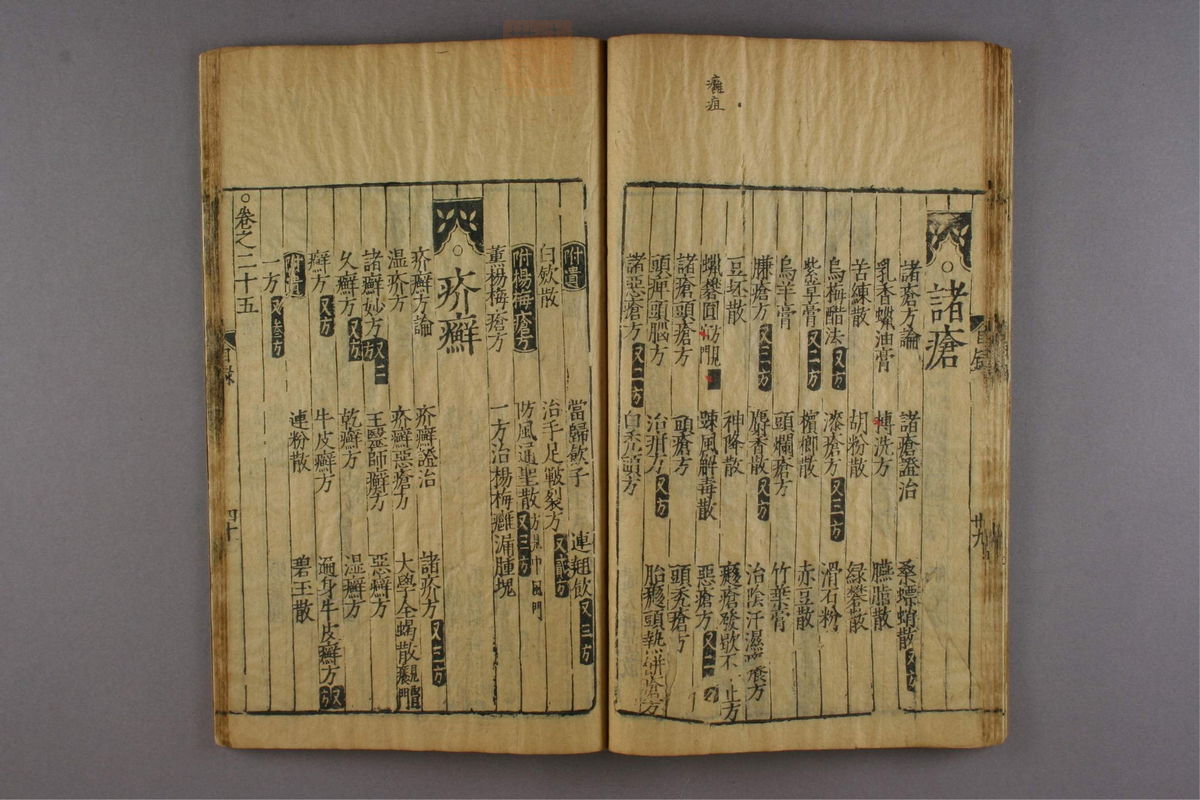 癰疽
諸瘡
諸瘡方論 諸瘡證治 桑螵蛸散又方
乳香蠟油膏 㯷洗方 臙脂散
苦練散 胡粉散 綠礬散
烏梅醋法又方 漆瘡方又三方 滑石粉
紫草膏又二方 檳榔散 赤豆散
烏羊膏 頭爛瘡方 竹葉膏
臁瘡方又三方 麝香散又方 治陰汗濕癢方
豆坯散 神降散 癮瘡發歇不止方
蠟礬圓 踈風解毒散 惡瘡方
諸瘡頭瘡方 頭瘡方 頭禿瘡方
頭痺頭腦方 治方又方
諸惡瘡方又二方 白禿頭方
附遺 當歸飲子 連翹飲又三方
白斂散 治手足皸裂方又貳方
附楊梅瘡方 防風通聖散方見中風門又三方
薰楊梅瘡方 一方治楊梅癰漏腫塊
疥癬
疥癬方論 疥癬證治 諸疥方又三方
溫疥方 疥癬惡瘡方 大學全蝎散
諸癬妙方又二方 王醫師癬方 惡癬方
久癬方又方 乾癬方 濕癬方
癬方又方 牛皮癬方 遍身牛皮癬方又
附遺 連粉散 碧玉散
一方又叄方
卷之二十五 目録 四十